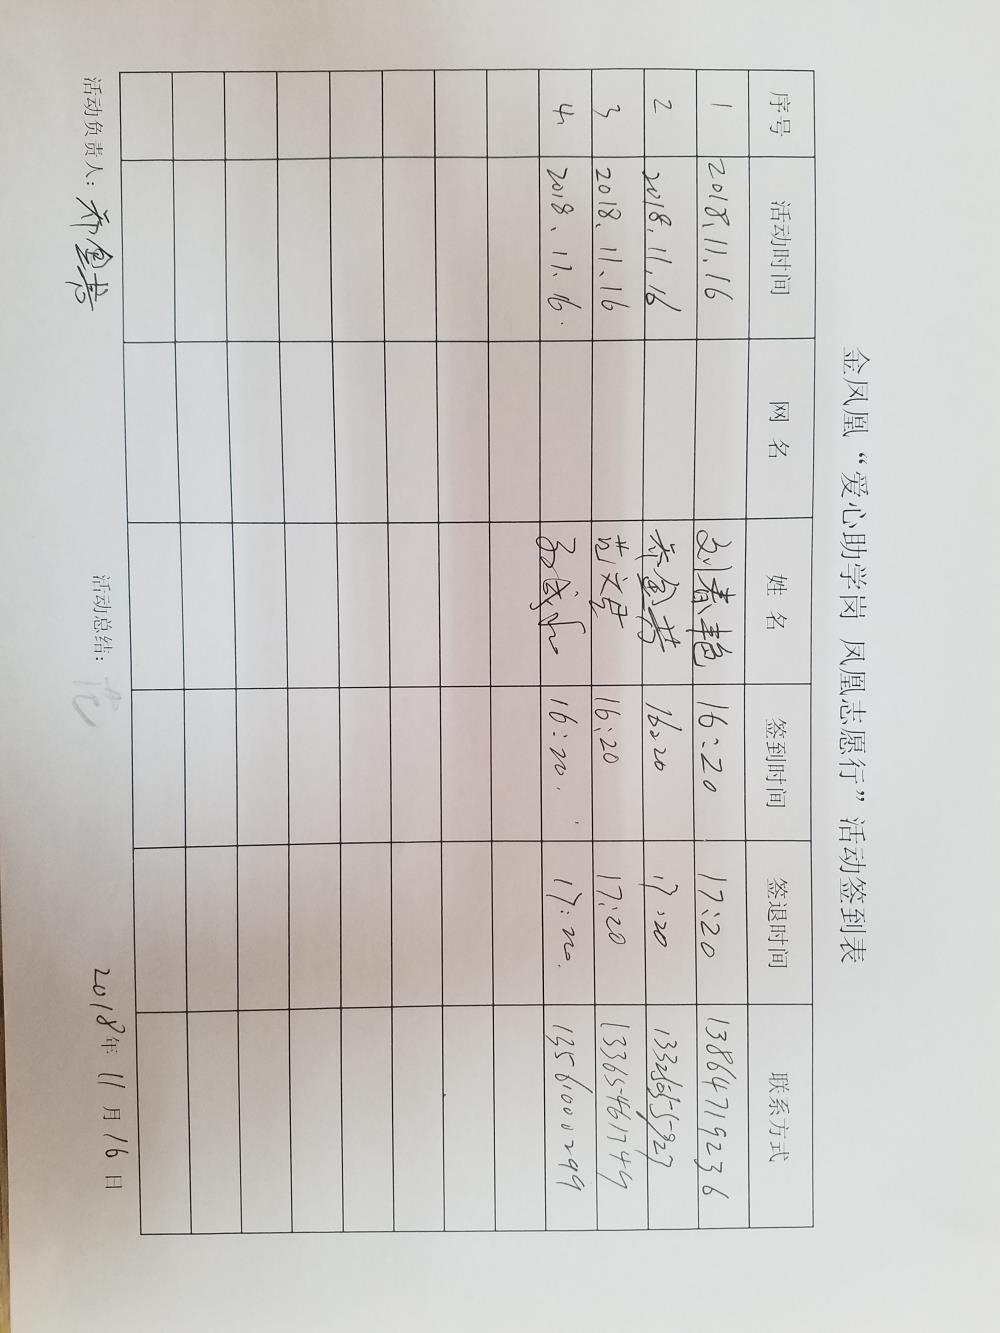 金凤凰“爱心助学岗 凤凰志愿行”活动签到表
序号 活动时间 网 名 姓 名 签到时间 签退时间 联系方式
1 2018.11.16 刘春艳 16:20 17:20 13864719236
2 2018.11.16 乔金 16:20 17:20
3 2018.11.16 16:20 17:20 13365461749
4 2018、11、16. 16:20. 17:20. 13561000299
活动负责人: 乔金 活动总结: 2018年11月16日